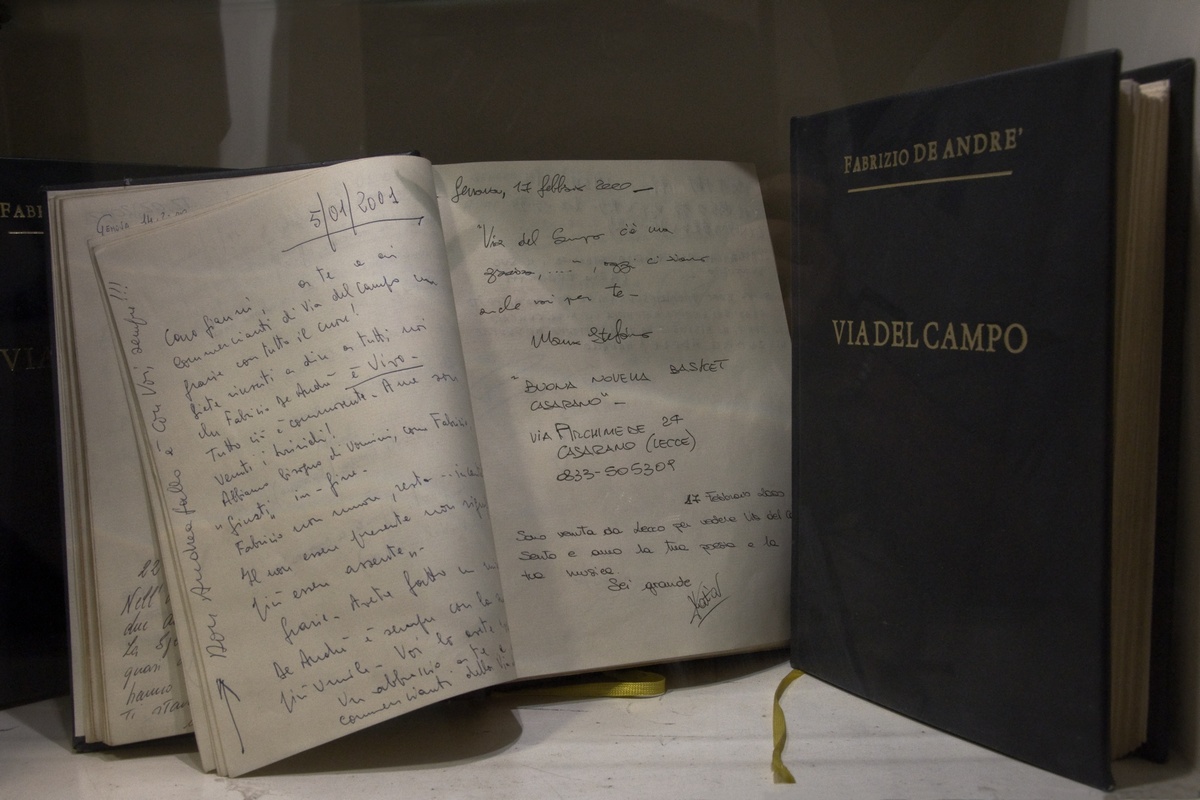 FABI
VIA
GENOVA 14.
22
Nell'
due
La
quasi
hanno
Ti
5/01/2001
Caro Gianni, a te e ai
commercianti di Via del Campo un
grazie con tutto il cuore!
Siete riusciti a dire a tutti, noi
che Fabrizio De André è Vivo-
Tutto ciò è commovente. A me son
venuti i brividi!
Abbiamo bisogno di uomini, come Fabrizio
"giusti" in-fine.
Fabrizio non muore, resta
Il non essere presente non
più essere assente"
grazie. Avete fatto un
De André è sempre con la
più umile- Voi lo avete
Un abbraccio a te e
commercianti della Via
Don Andrea Gallo è con Voi, sempre!!!
Genova, 17 febbraio 2000
"Via del Campo c'è una
graziosa, ....", oggi ci siamo
anche noi per te-
Stefano
"BUONA NOVELLA BASKET
CASARANO"-
VIA ARCHIMEDE 27
CASARANO (LECCE)
0833-505309
17 Febbraio 2000
Sono venuta da Lecco per vedere Via del
Sento e amo la tua poesia e la
tua musica.
Sei grande
FABRIZIO DE ANDRE'
VIA DEL CAMPO